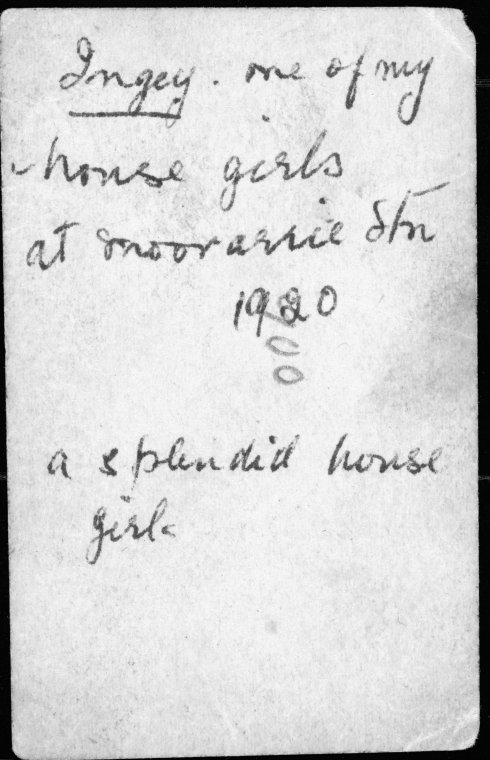 Ingey. one of my
house girls
at Moorarrie Stn
1920
a splendid house
girl.